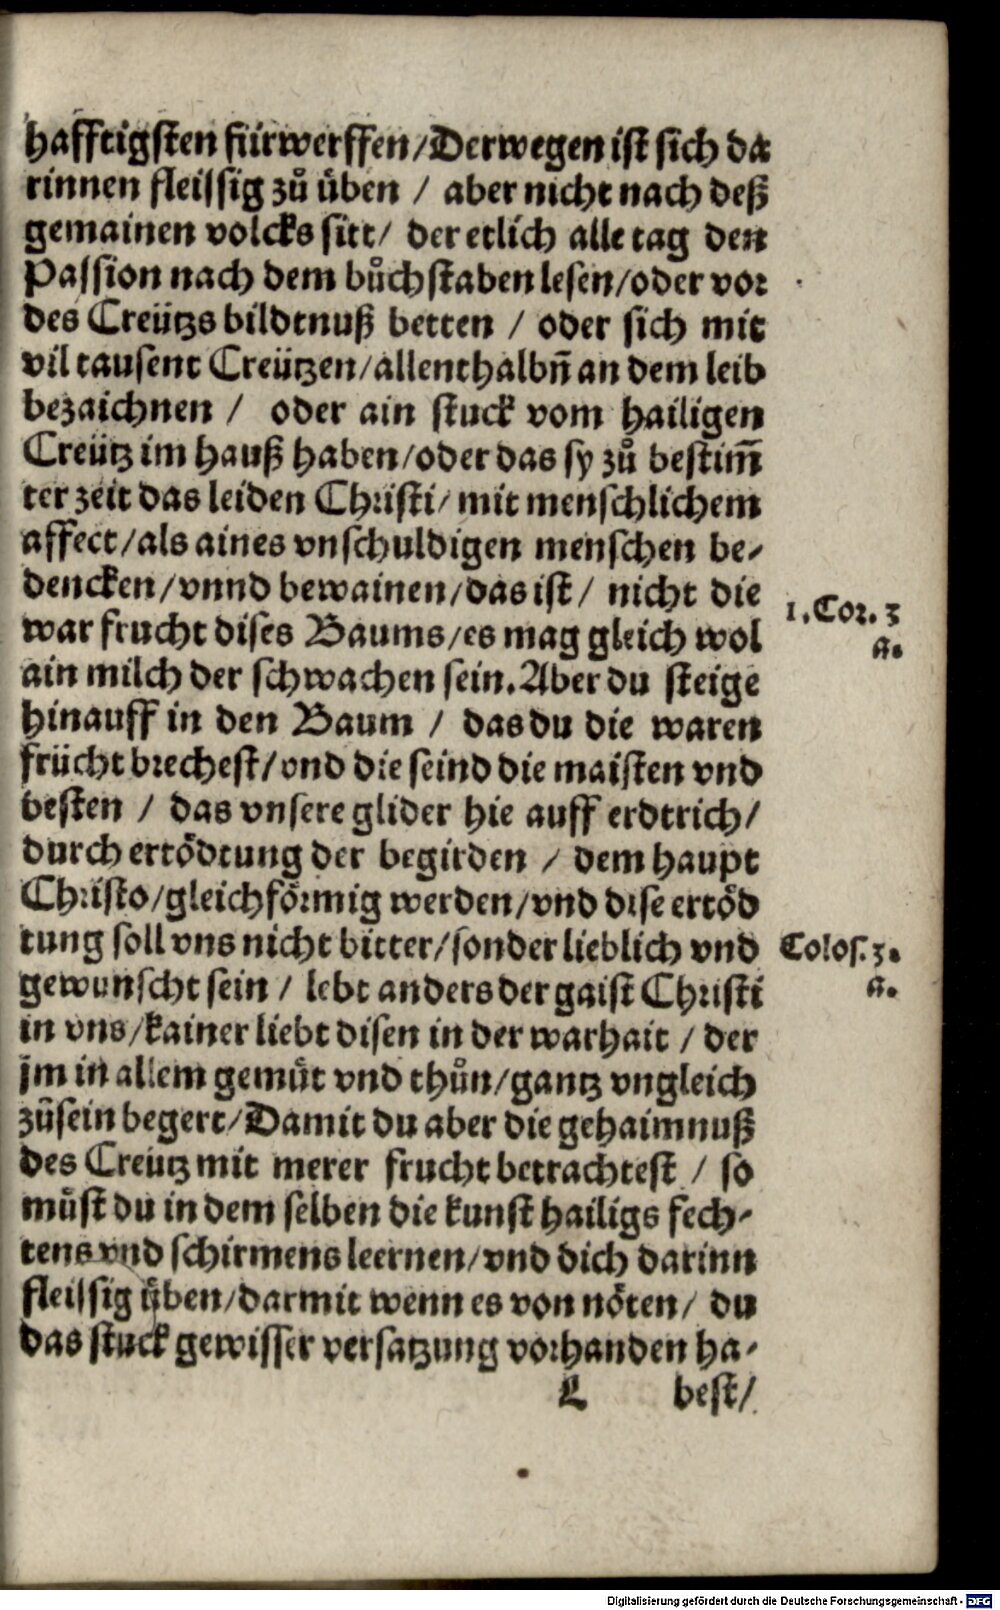 hafftigsten fürwerffen/Derwegen ist sich da
rinnen fleissig zů üben / aber nicht nach deß
gemainen volcks sitt/ der etlich alle tag den
Passion nach dem bůchstaben lesen/oder vor
des Creützs bildtnuß betten / oder sich mit
vil tausent Creützen/allenthalbñ an dem leib
bezaichnen / oder ain stuck vom hailigen
Creütz im hauß haben/oder das sy zů bestim̃
ter zeit das leiden Christi/ mit menschlichem
affect/als aines vnschuldigen menschen be-
dencken/vnnd bewainen/das ist/ nicht die
war frucht dises Baums/es mag gleich wol
1.Cor.3
a.
ain milch der schwachen sein.Aber du steige
hinauff in den Baum / das du die waren
frücht brechest/vnd die seind die maisten vnd
besten / das vnsere glider hie auff erdtrich/
durch ertödtung der begirden / dem haupt
Christo/gleichförmig werden/vnd dise ertöd
tung soll vns nicht bitter/sonder lieblich vnd
Colos.3.
a.
gewunscht sein / lebt anders der gaist Christi
in vns/kainer liebt disen in der warhait / der
jm in allem gemüt vnd thůn/gantz vngleich
zůsein begert/Damit du aber die gehaimnuß
des Creütz mit merer frucht betrachtest / so
můst du in dem selben die kunst hailigs fech-
tens vnd schirmens leernen/vnd dich darinn
fleissig üben/darmit wenn es von nöten/ du
das stuck gewisser versatzung vorhanden ha-
L best/
Digitalisierung gefördert durch die Deutsche Forschungsgemeinschaft - DFG